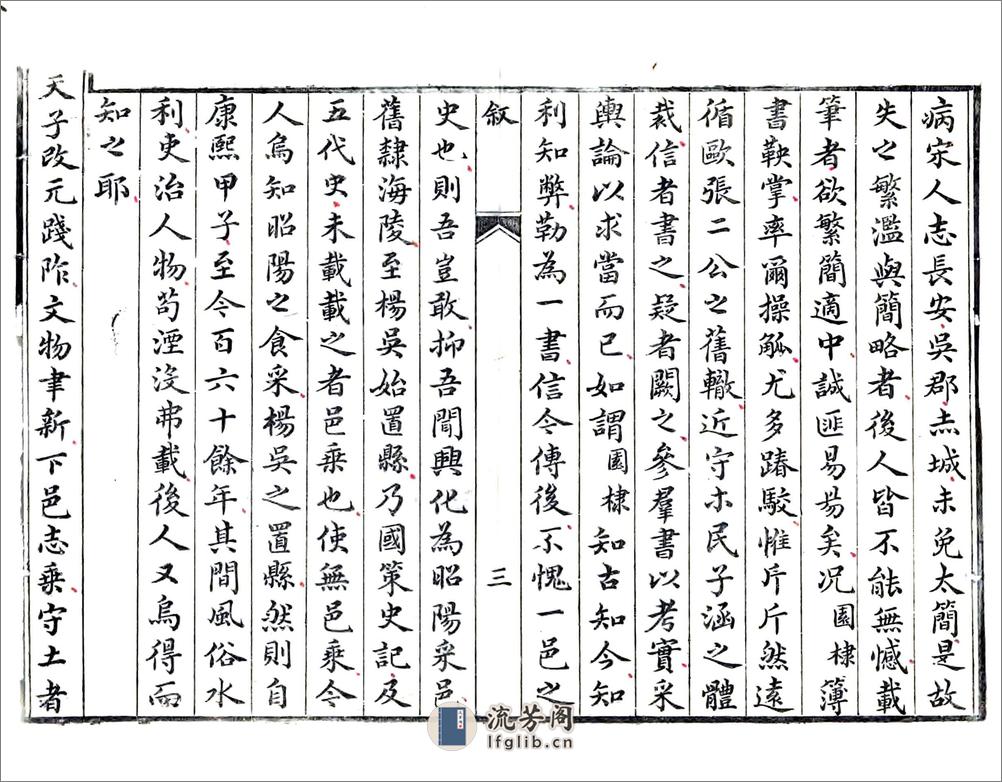 病宋人志長安吳郡赤城未免太簡是故
失之繁濫與簡略者後人皆不能無憾載
筆者欲繁簡適中誠匪易易矣况園棣簿
書鞅掌率爾操觚尤多踳駁惟斤斤然遠
循歐張二公之舊轍近守木民子涵之體
裁信者書之疑者闕之參羣書以考實采
輿論以求當而已如謂園棣知古知今知
利知弊勒為一書信今傳後不愧一邑之
叙 三
史也則吾豈敢抑吾聞興化為昭陽采邑
舊隸海陵至楊吳始置縣乃國策史記及
五代史未載載之者邑乘也使無邑乘今
人烏知昭陽之食采楊吳之置縣然則自
康熙甲子至今百六十餘年其間風俗水
利吏治人物苟湮沒弗載後人又烏得而
知之耶
天子改元踐阼文物聿新下邑志乘守土者
流芳阁
lfglib.cn